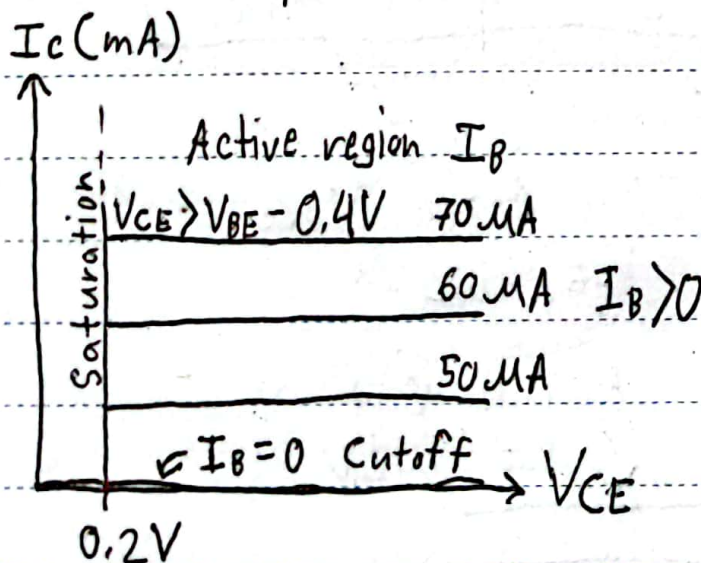 Ic (mA)
Active region IB
Saturation
VCE > VBE - 0.4V 70 μA
60 μA IB > 0
50 μA
IB = 0 Cutoff
VCE
0.2V